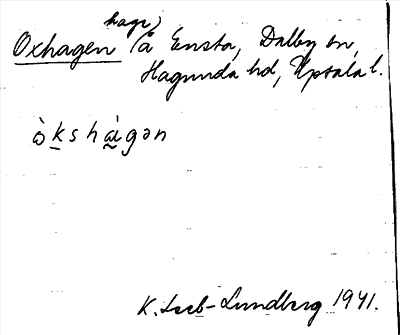 hage)
Oxhagen (å Ensta, Dalby sn,
Hagunda hd, Uppsala l.
òkshàgən
K. Leeb-Lundberg 1941.